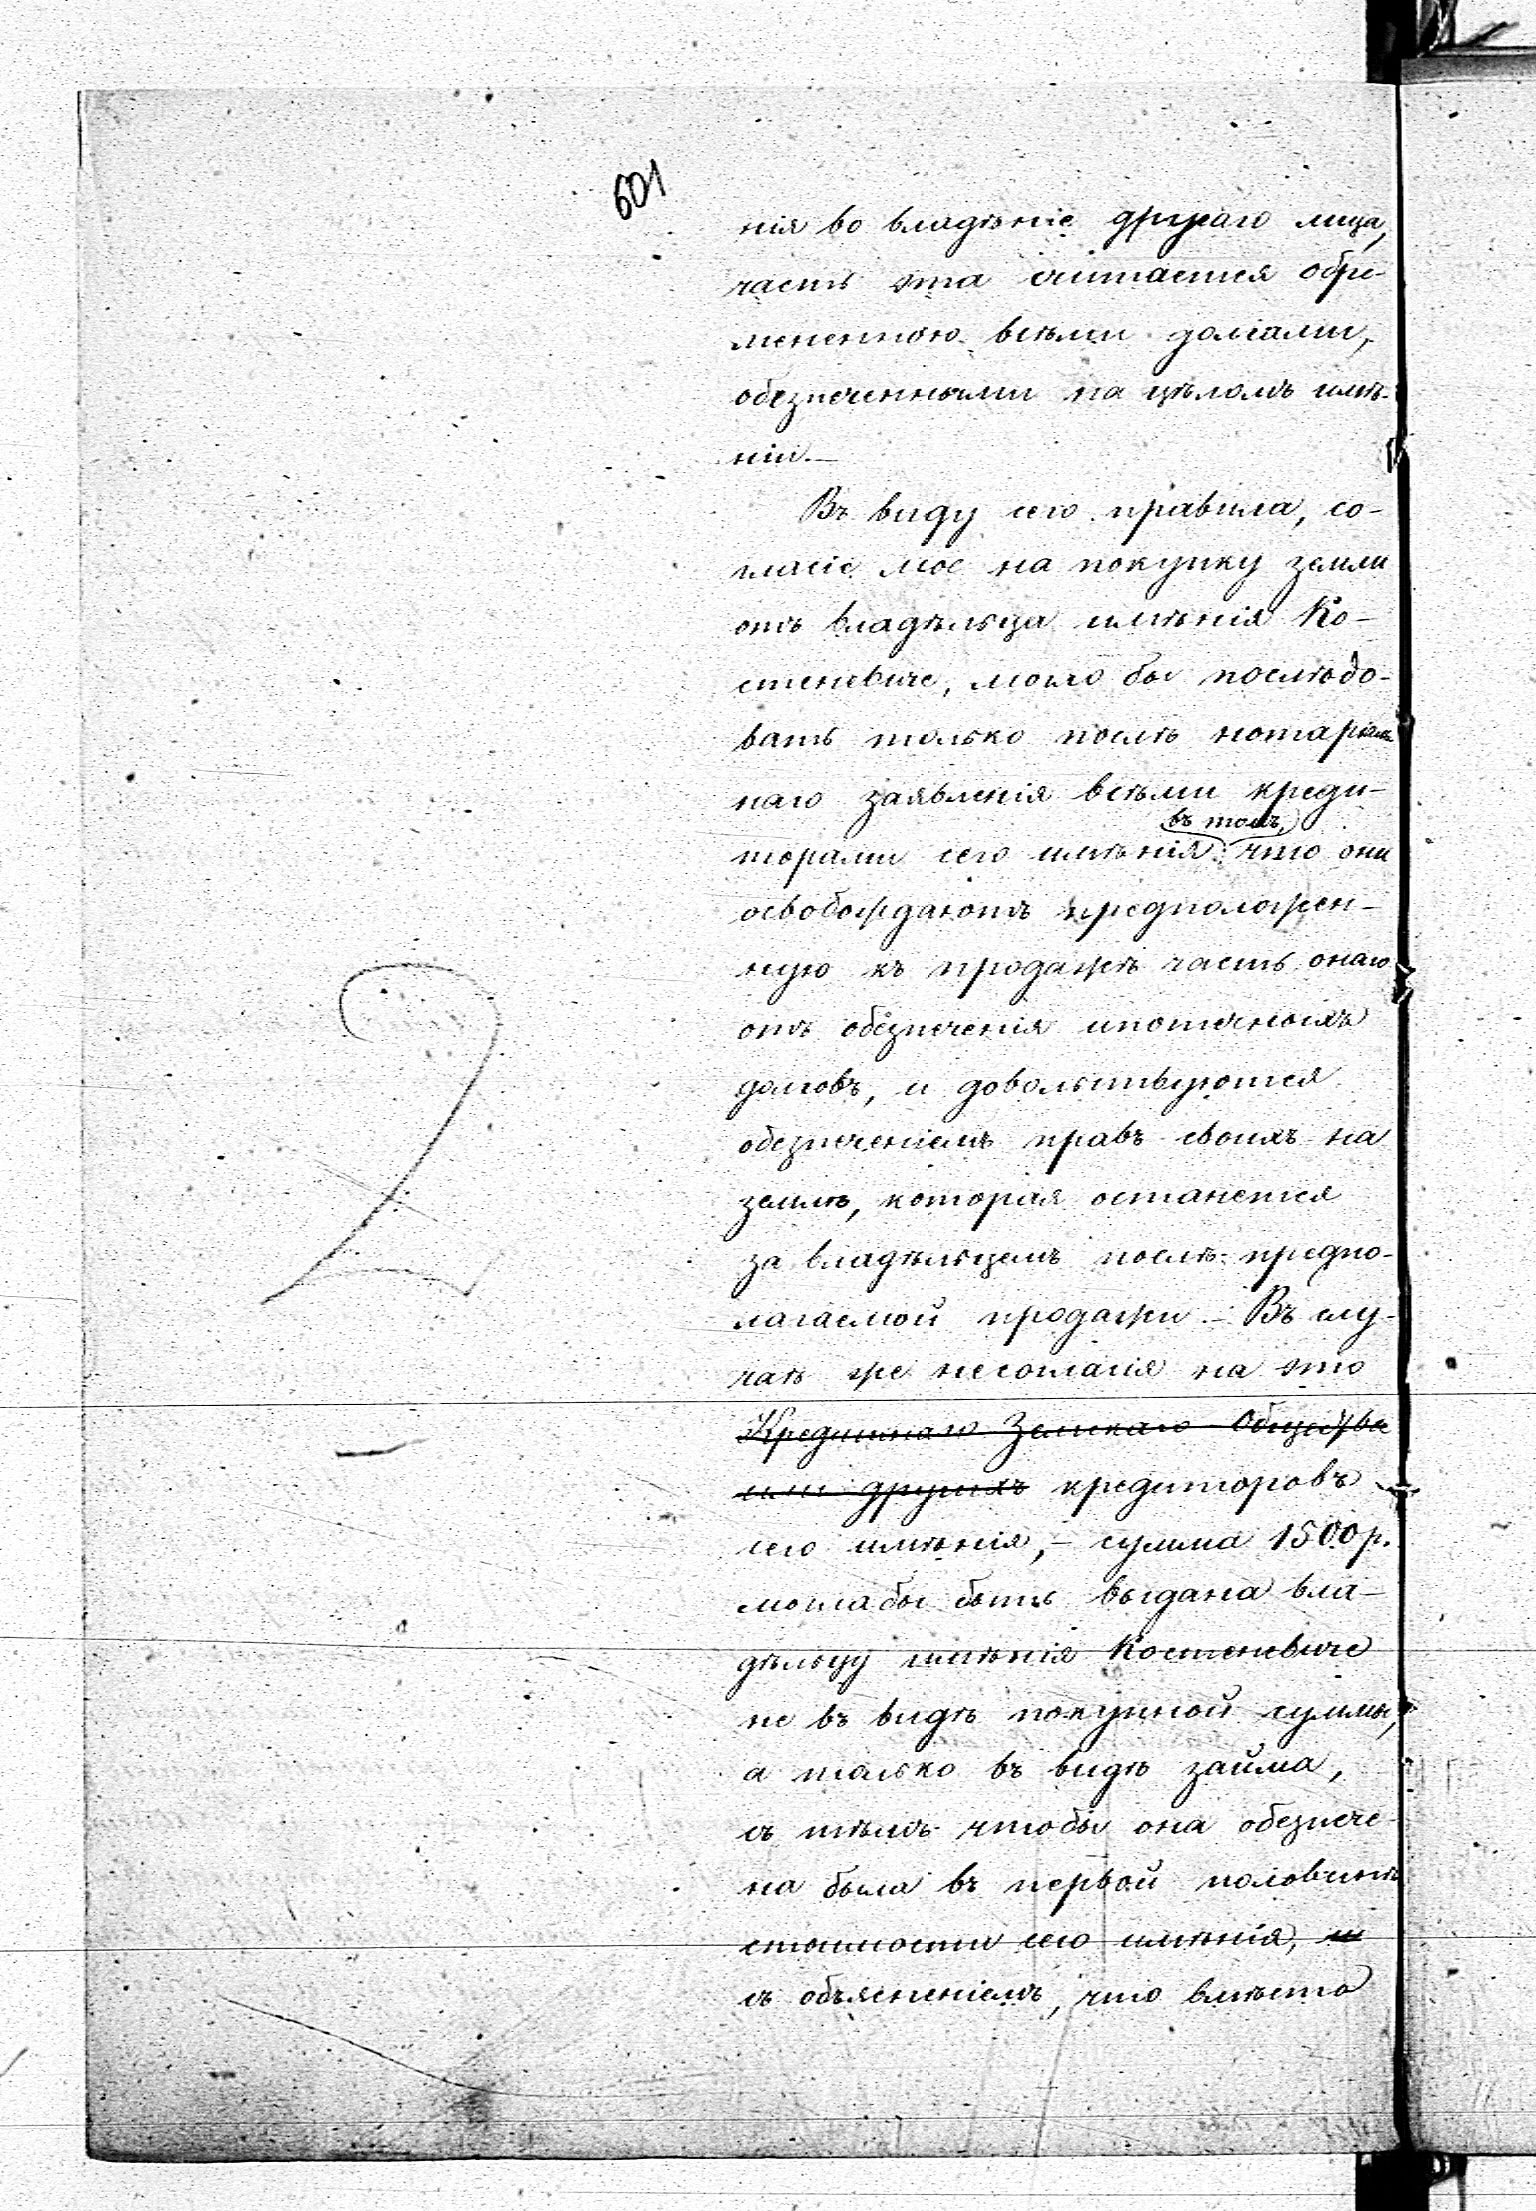 601
нія во владѣніе другаго лица,
часть эта считается обре-
мененною всѣми долгами,
обезпеченными на цѣломъ имѣ-
ніи.—
Въ виду сего правила, со-
гласіе мое на покупку земли
отъ владѣльца имѣнія Ко-
стеневиче, могло бы послѣдо-
вать только послѣ нотаріаль
наго заявленія всѣми креди-
въ томъ,
торами сего имѣнія что они
освобождаютъ предположен-
ную къ продажѣ часть онаго
отъ обезпеченія ипотечныхъ
долговъ, и довольствуются
обезпеченіемъ правъ своихъ на
землѣ, которая останется
за владѣльцемъ послѣ предпо-
лагаемой продажи.— Въ слу-
чаѣ же несогласія на это
Кредитнаго Земскаго Общества
или другихъ кредиторовъ
сего имѣнія,— сумма 1500 р.
могла бы быть выдана вла-
дѣльцу имѣнія Костеневиче
не въ видѣ покупной суммы,
а только въ видѣ займа,
съ тѣмъ чтобы она обезпече-
на была въ первой половинѣ
стоимости сего имѣнія, и
съ объясненіемъ, что вмѣсто